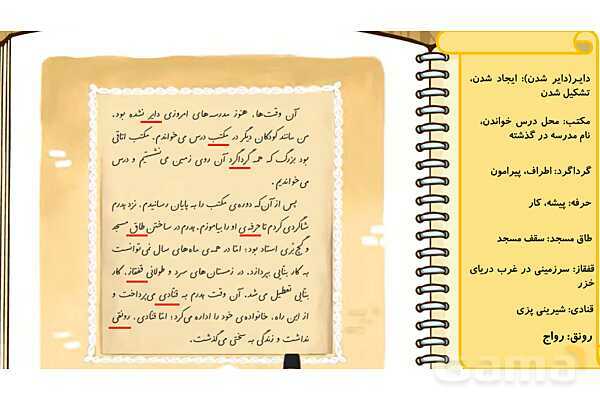 آن وقت‌ها، هنوز مدرسه‌های امروزی دایر نشده بود.
من مانند کودکان دیگر در مکتب درس می‌خواندم. مکتب اتاقی
بود بزرگ که همه گرداگرد آن روی زمین می‌نشستیم و درس
می‌خواندیم.
پس از آن که دوره‌ی مکتب را به پایان رسانیدم، نزد پدرم
شاگردی کردم تا حرفه‌ی او را بیاموزم. پدرم در ساختن طاق مسجد
و گچ‌بری استاد بود؛ امّا در همه‌ی ماه‌های سال نمی‌توانست
به کار بنّایی بپردازد. در زمستان‌های سرد و طولانی قفقاز، کار
بنّایی تعطیل می‌شد. آن وقت پدرم به قنّادی می‌پرداخت و
از این راه، خانواده‌ی خود را اداره می‌کرد؛ امّا قنّادی، رونقی
نداشت و زندگی به سختی می‌گذشت.
دایر(دایر شدن): ایجاد شدن،
تشکیل شدن
مکتب: محل درس خواندن،
نام مدرسه در گذشته
گرداگرد: اطراف، پیرامون
حرفه: پیشه، کار
طاق مسجد: سقف مسجد
قفقاز: سرزمینی در غرب دریای
خزر
قنادی: شیرینی پزی
رونق: رواج
gama